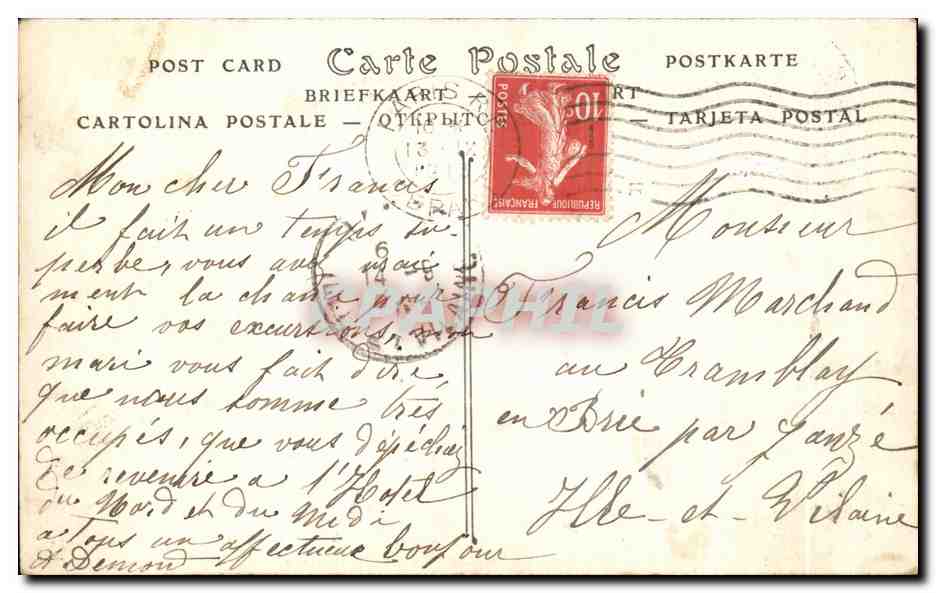 POST CARD Carte Postale POSTKARTE
BRIEFKAART
CARTOLINA POSTALE — ОТКРЫТО — TARJETA POSTAL
POSTES 10c
REPUBLIQUE FRANÇAISE
Mon cher Francis
il fait un temps su-
perbe, vous avez
ment la chance pour
faire vos excursions, mon
mari vous fait dire
que nous somme très
occupés, que vous dépéchiez
de revenire a l'Hotel
du Nord et du Midi
a Tous un affectueux bonjour
A Demond
Monsieur
Francis Marchand
au Tramblay
en Brie par Janzé
Ille-et-Vilaine
CPAPHIL